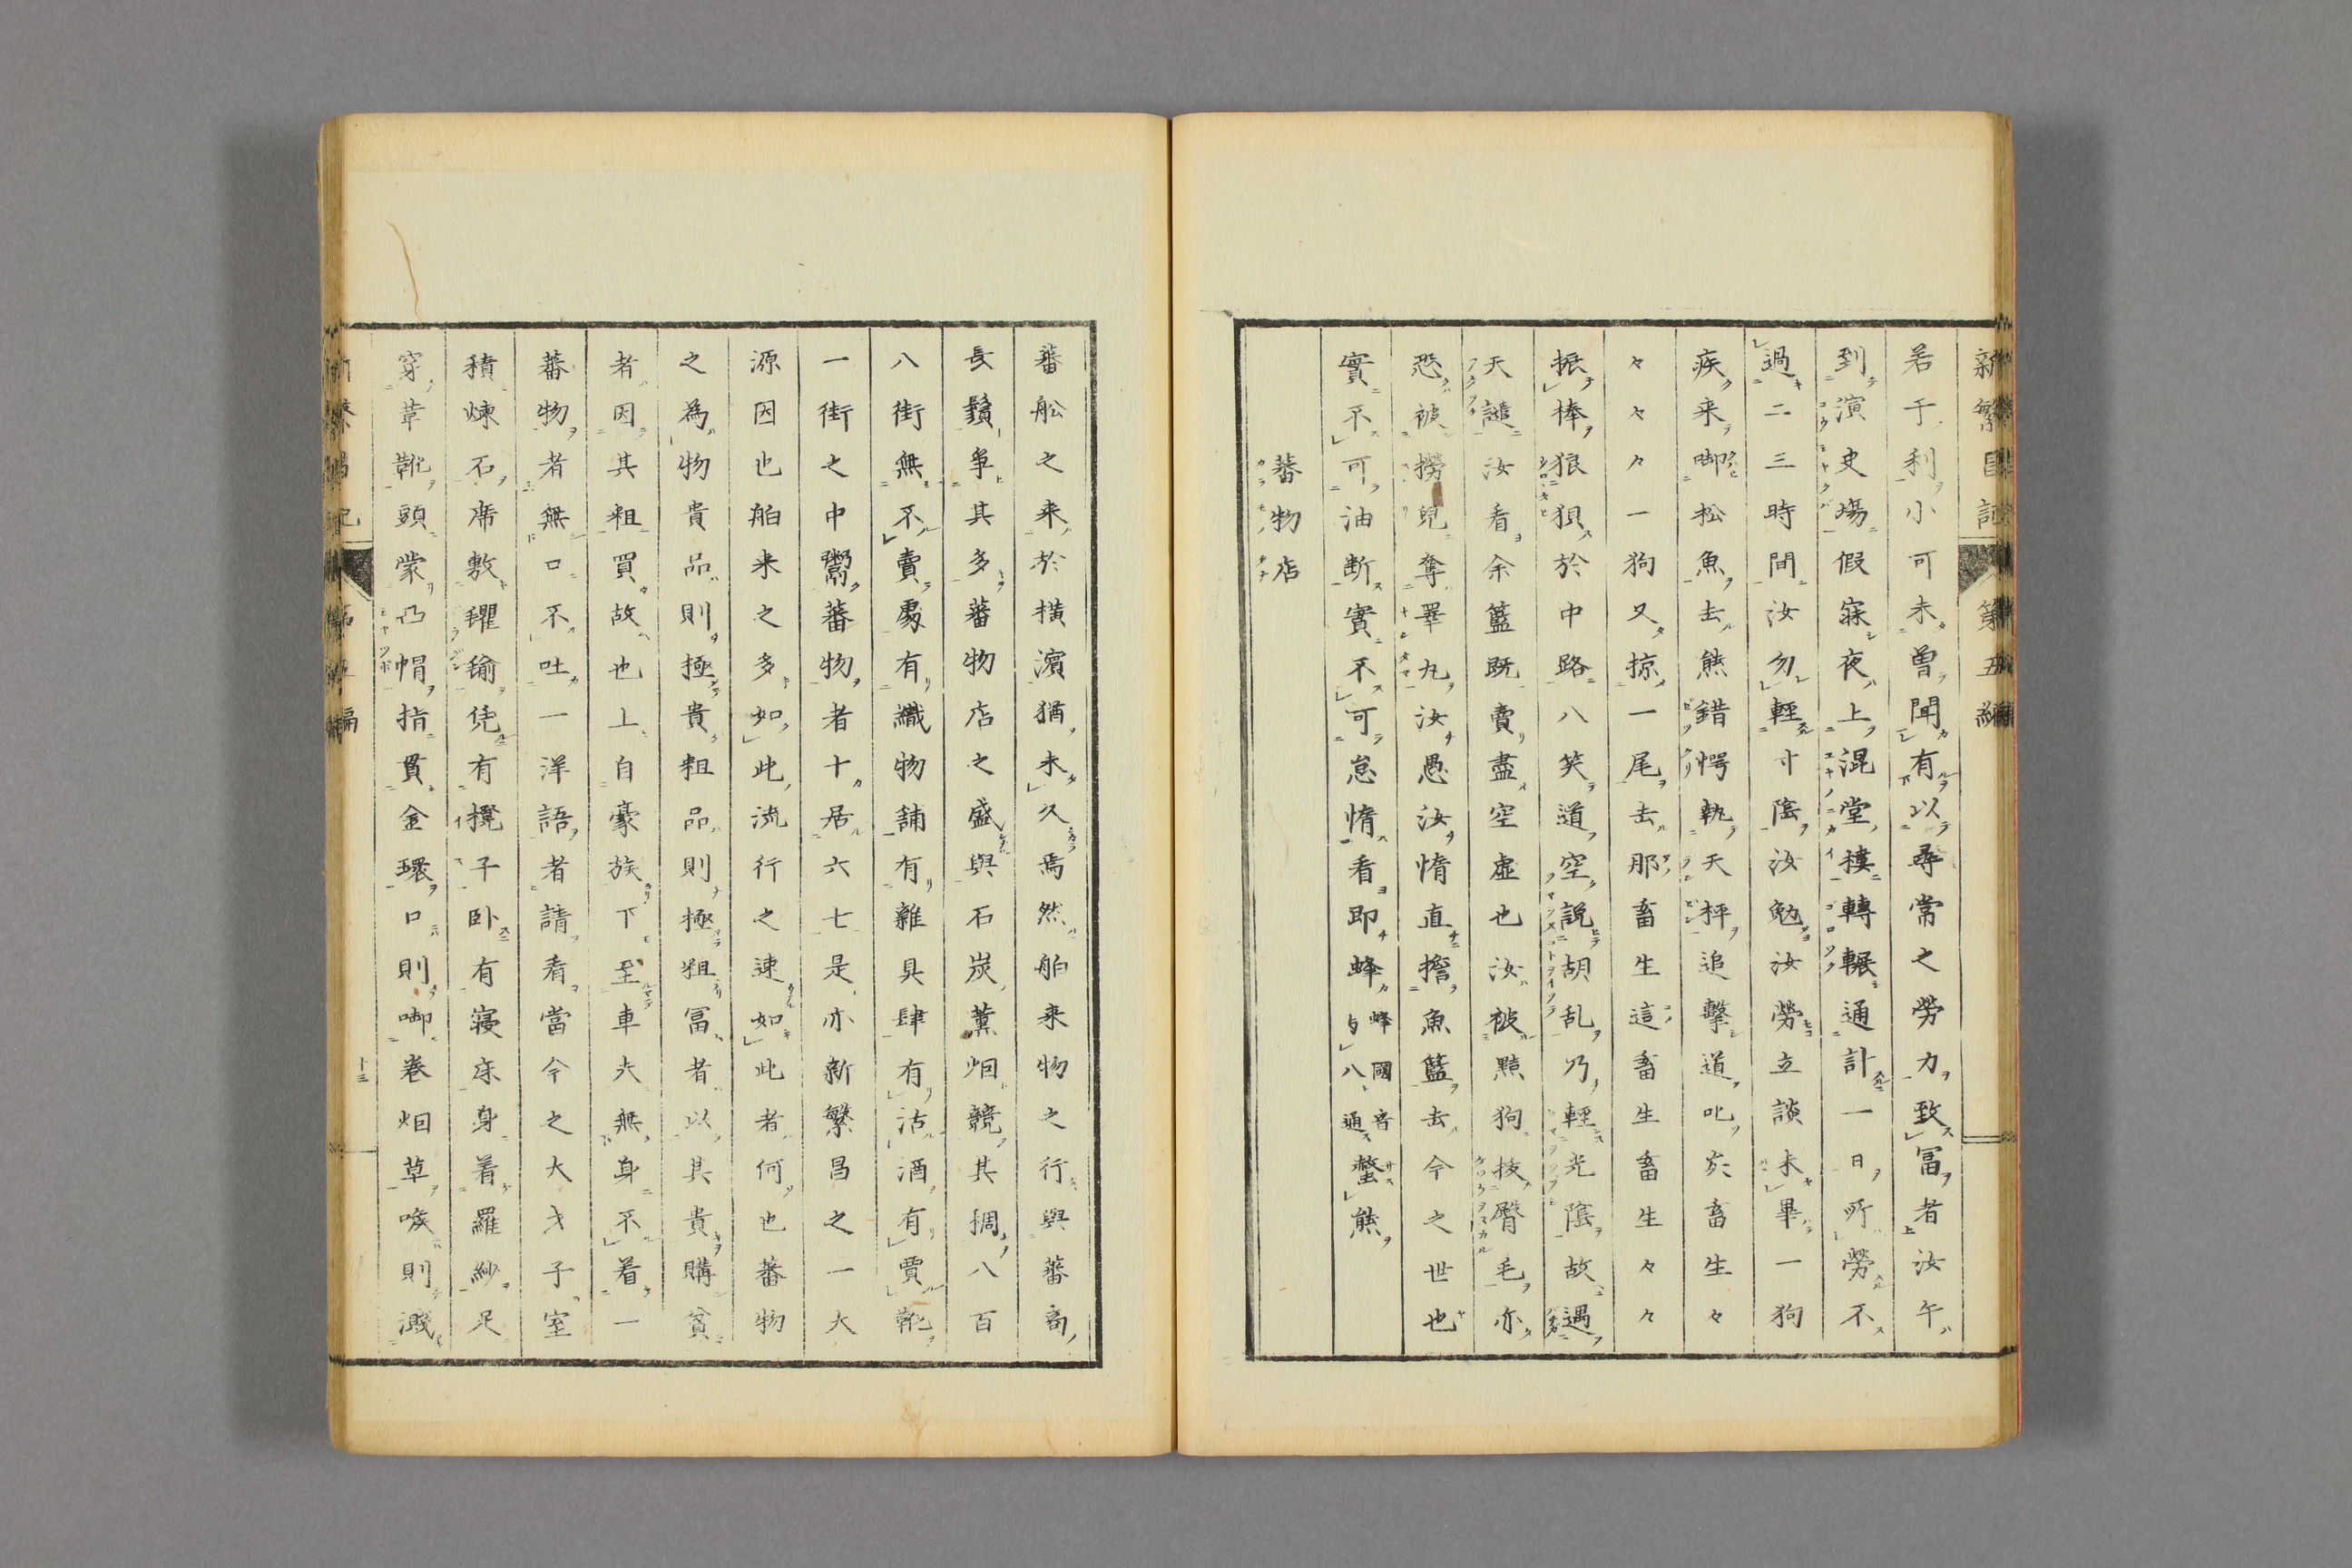 新繁昌記 第五編
若干利小可未曽聞有以尋常之勞力致冨者汝午
到演史場假寐夜上混堂樓轉輾通計一日所勞不
過二三時間汝勿輕寸陰汝勉汝勞立談未畢一狗
疾来啣松魚去熊錯愕執天秤追撃道叱炭畜生々
々々々一狗又掠一尾去那畜生這畜生畜生々々
振棒狼狽於中路八笑道空説胡乱乃輕光陰故遇
天譴汝看余籃既賣盡空虛也汝被黠狗抜臀毛亦
恐被撈兒奪睾丸汝愚汝惰直擔魚籃去今之世也
實不可油断實不可怠惰看即蜂蜂國音与八通螫熊
蕃物店
蕃舩之来於横濱猶未久焉然舶来物之行與蕃商
長鬚爭其多蕃物店之盛與石炭薫烟競其稠八百
八街無不賣處有織物舗有雜具肆有沽酒有賈靴
一街之中鬻蕃物者十居六七是亦新繁昌之一大
源因也舶来之多如此流行之速如此者何也蕃物
之為物貴品則極貴粗品則極粗冨者以其貴購貧
者因其粗買故也上自豪族下至車夫無身不着一
蕃物者無口不吐一洋語者請看當今之大才子室
積煉石席敷氍毹凭有櫈子卧有寝床身着羅紗足
穿革靴頭蒙凸帽指貫金環口則啣巻烟草唉則濺
十三